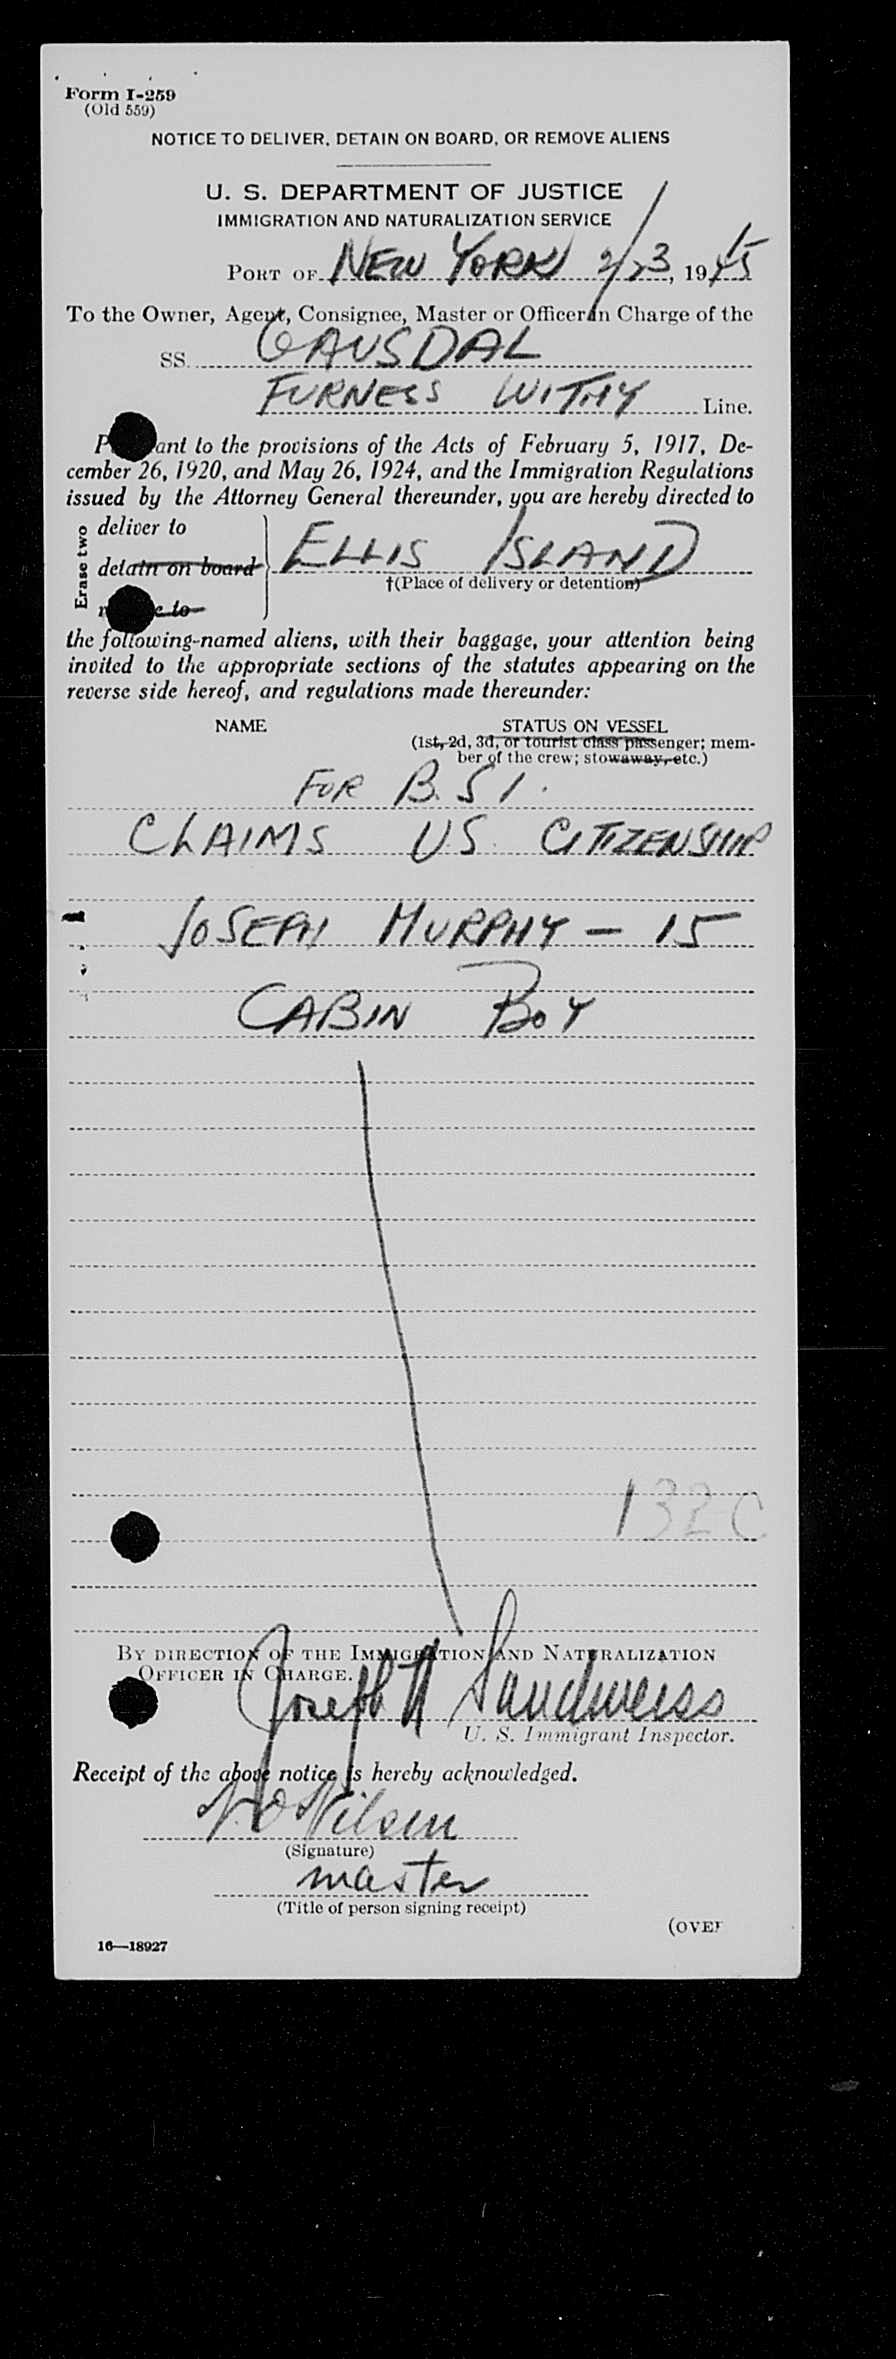 Form I-259
(Old 559)
NOTICE TO DELIVER, DETAIN ON BOARD, OR REMOVE ALIENS
U. S. DEPARTMENT OF JUSTICE
IMMIGRATION AND NATURALIZATION SERVICE
PORT OF NEW YORK 2/23, 1945
To the Owner, Agent, Consignee, Master or Officer in Charge of the
SS. GAUSDAL
FURNESS WITHY Line.
ant to the provisions of the Acts of February 5, 1917, De-
cember 26, 1920, and May 26, 1924, and the Immigration Regulations
issued by the Attorney General thereunder, you are hereby directed to
Erase two
deliver to
detain on board
to
ELLIS ISLAND
†(Place of delivery or detention)
the following-named aliens, with their baggage, your attention being
invited to the appropriate sections of the statutes appearing on the
reverse side hereof, and regulations made thereunder:
NAME STATUS ON VESSEL
(1st, 2d, 3d, or tourist class passenger; mem-
ber of the crew; stowaway, etc.)
FOR B.S.I.
CLAIMS U.S. CITIZENSHIP
JOSEPH MURPHY - 15
CABIN BOY
132 C
BY DIRECTION OF THE IMMIGRATION AND NATURALIZATION
OFFICER IN CHARGE.
Joseph Sandweiss
U. S. Immigrant Inspector.
Receipt of the above notice is hereby acknowledged.
Nilsen
(Signature)
master
(Title of person signing receipt)
(OVER
16—18927